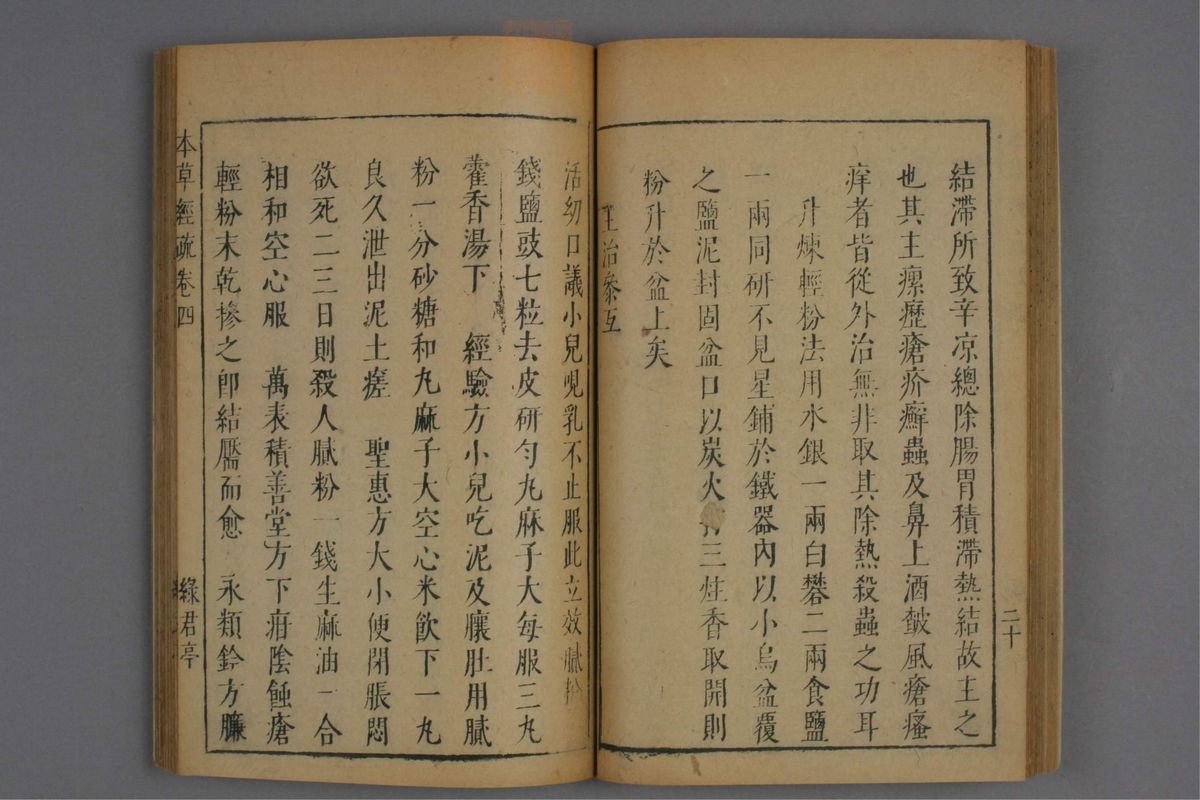 結滯所致辛凉總除腸胃積滯熱結故主之
也其主瘰癧瘡疥癬蟲及鼻上酒皶風瘡瘙
痒者皆從外治無非取其除熱殺蟲之功耳
升煉輕粉法用水銀一兩白礬二兩食鹽
一兩同研不見星鋪於鐵器內以小烏盆覆
之鹽泥封固盆口以炭火三炷香取開則
粉升於盆上矣
主治參互
二十
活幼口議小兒哯乳不止服此立效膩粉
錢鹽豉七粒去皮研勻丸麻子大每服三丸
藿香湯下 經驗方小兒吃泥及臁肚用膩
粉一分砂糖和丸麻子大空心米飲下一丸
良久泄出泥土瘥 聖惠方大小便閉脹悶
欲死二三日則殺人膩粉一錢生麻油一合
相和空心服 萬表積善堂方下疳陰蝕瘡
輕粉末乾摻之卽結靨而愈 永類鈐方臁
本草經疏卷四
綠君亭